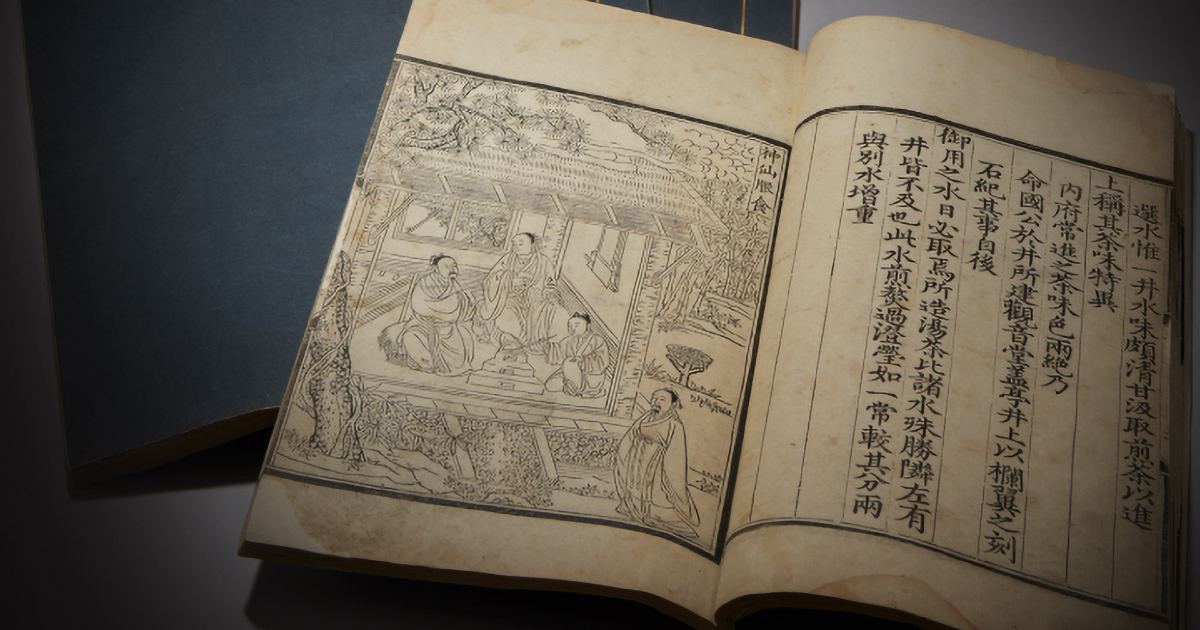 選水惟一井水味頗清甘汲取煎茶以進
上稱其茶味特異
内府常進之茶味色兩絕乃
命國公於井所建觀音堂蓋亭井上以欄翼之刻
石紀其事自後
御用之水日必取焉所造湯茶比諸水殊勝隣左有
井皆不及也此水煎熬過澄瑩如一常較其分兩
與別水增重
神仙服食